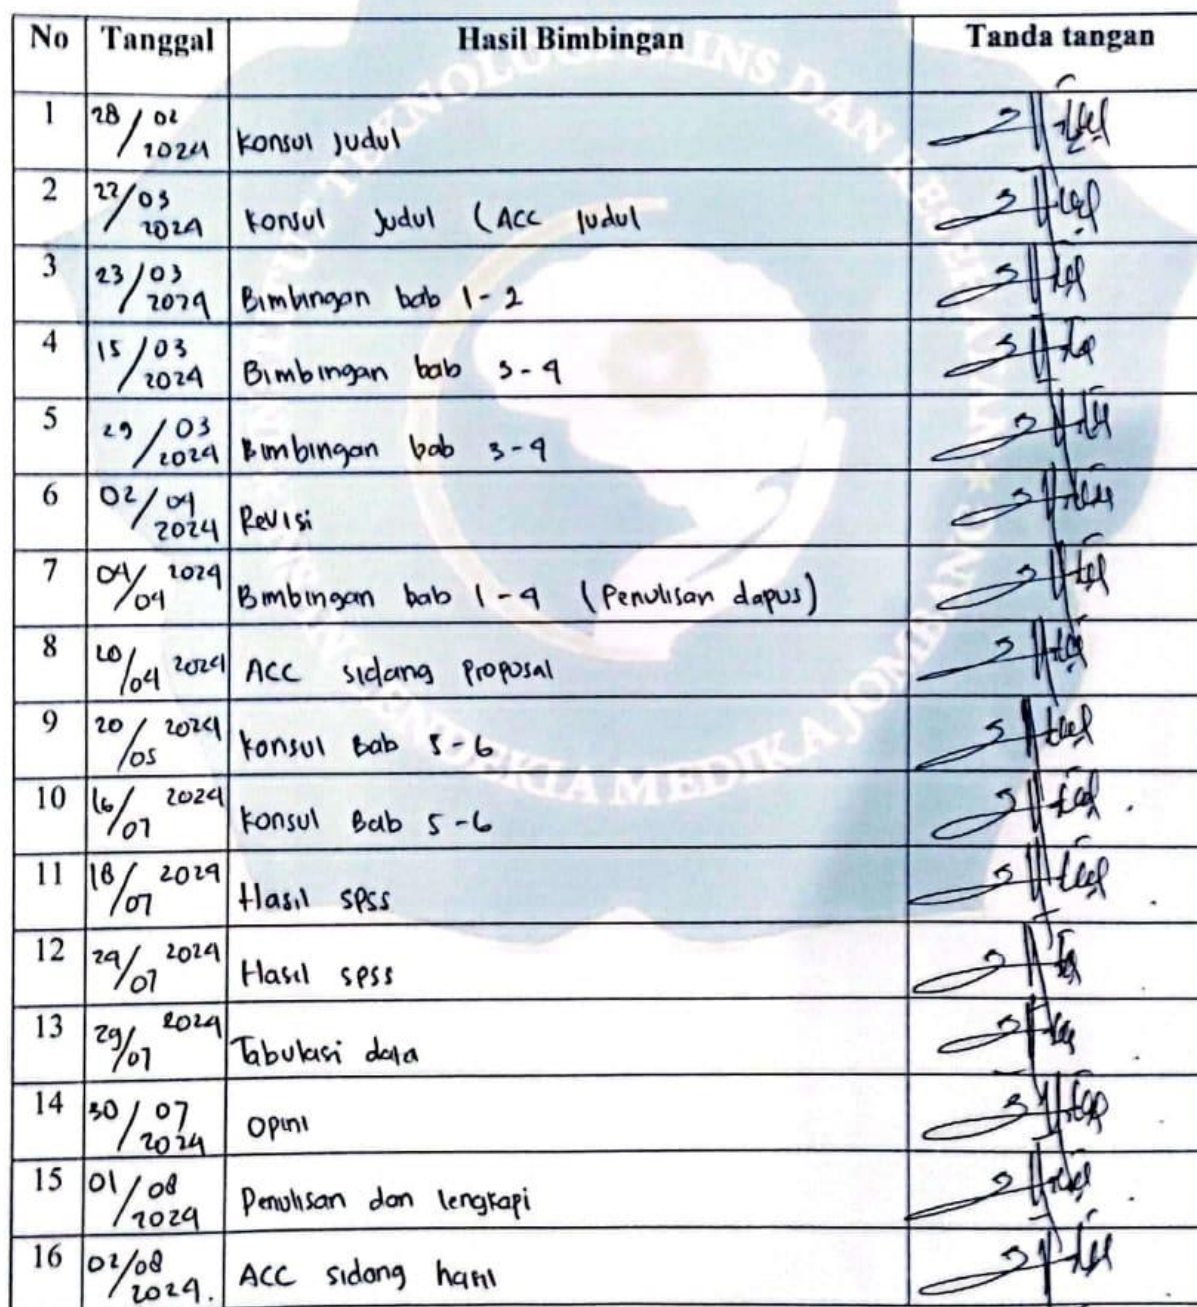 No Tanggal Hasil Bimbingan Tanda tangan
1 28/02 2024 Konsul Judul
2 22/03 2024 Konsul Judul (ACC Judul
3 23/03 2024 Bimbingan bab 1-2
4 15/03 2024 Bimbingan bab 3-4
5 29/03 2024 Bimbingan bab 3-4
6 02/04 2024 Revisi
7 04/04 2024 Bimbingan bab 1-4 (Penulisan dapus)
8 20/04 2024 ACC sidang Proposal
9 20/05 2024 Konsul Bab 5-6
10 16/07 2024 Konsul Bab 5-6
11 18/07 2024 Hasil SPSS
12 24/07 2024 Hasil SPSS
13 29/07 2024 Tabulasi data
14 30/07 2024 Opini
15 01/08 2024 Penulisan dan lengkapi
16 02/08 2024. ACC sidang hasil
INSTITUT TEKNOLOGI SAINS DAN KESEHATAN
INSAN CENDEKIA MEDIKA JOMBANG